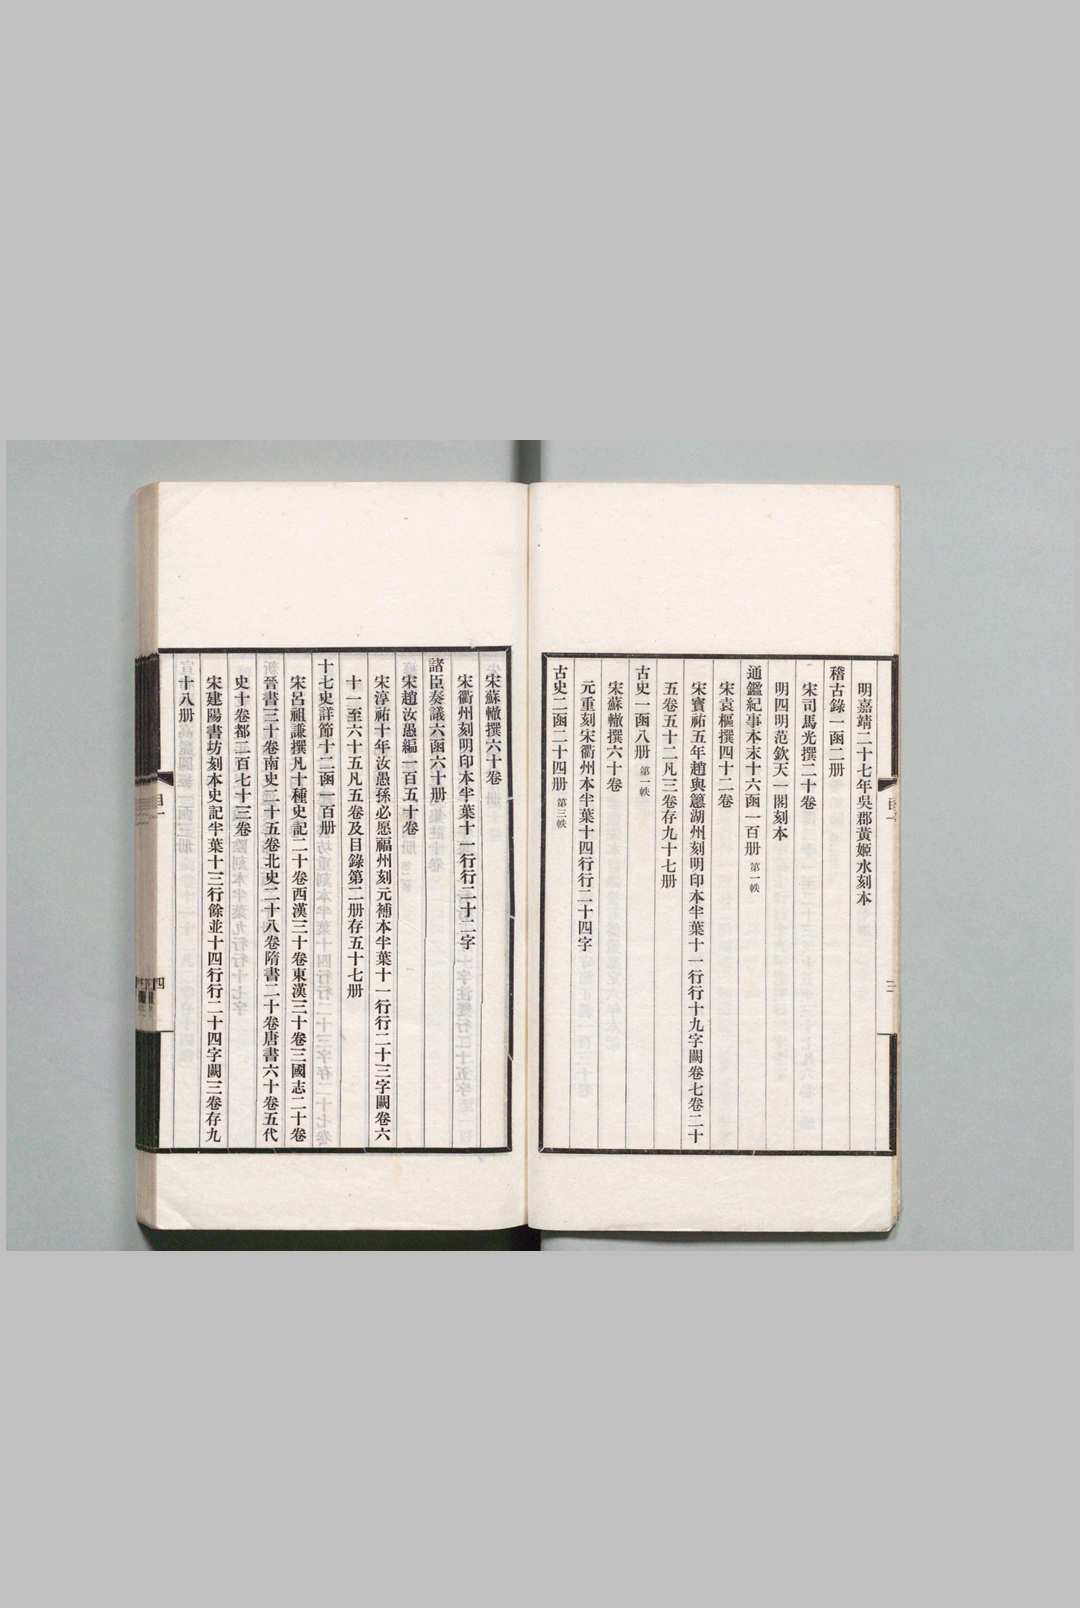 明嘉靖二十七年吳郡黃姬水刻本
稽古錄一函二册
宋司馬光撰二十卷
明四明范欽天一閣刻本
通鑑紀事本末十六函一百册 第一帙
宋袁樞撰四十二卷
宋寶祐五年趙與𥲅湖州刻明印本半葉十一行行十九字闕卷七卷二十
五卷五十二凡三卷存九十七册
古史一函八册 第一帙
宋蘇轍撰六十卷
元重刻宋衢州本半葉十四行行二十四字
古史二函二十四册 第三帙
宋蘇轍撰六十卷
宋衢州刻明印本半葉十一行行二十二字
諸臣奏議六函六十册
宋趙汝愚編一百五十卷
宋淳祐十年汝愚孫必愿福州刻元補本半葉十一行行二十三字闕卷六
十一至六十五凡五卷及目錄第二册存五十七册
十七史詳節十二函一百册
宋呂祖謙撰凡十種史記二十卷西漢三十卷東漢三十卷三國志二十卷
晉書三十卷南史二十五卷北史二十八卷隋書二十卷唐書六十卷五代
史十卷都二百七十三卷
宋建陽書坊刻本史記半葉十三行餘並十四行行二十四字闕三卷存九
十八册
目一
四